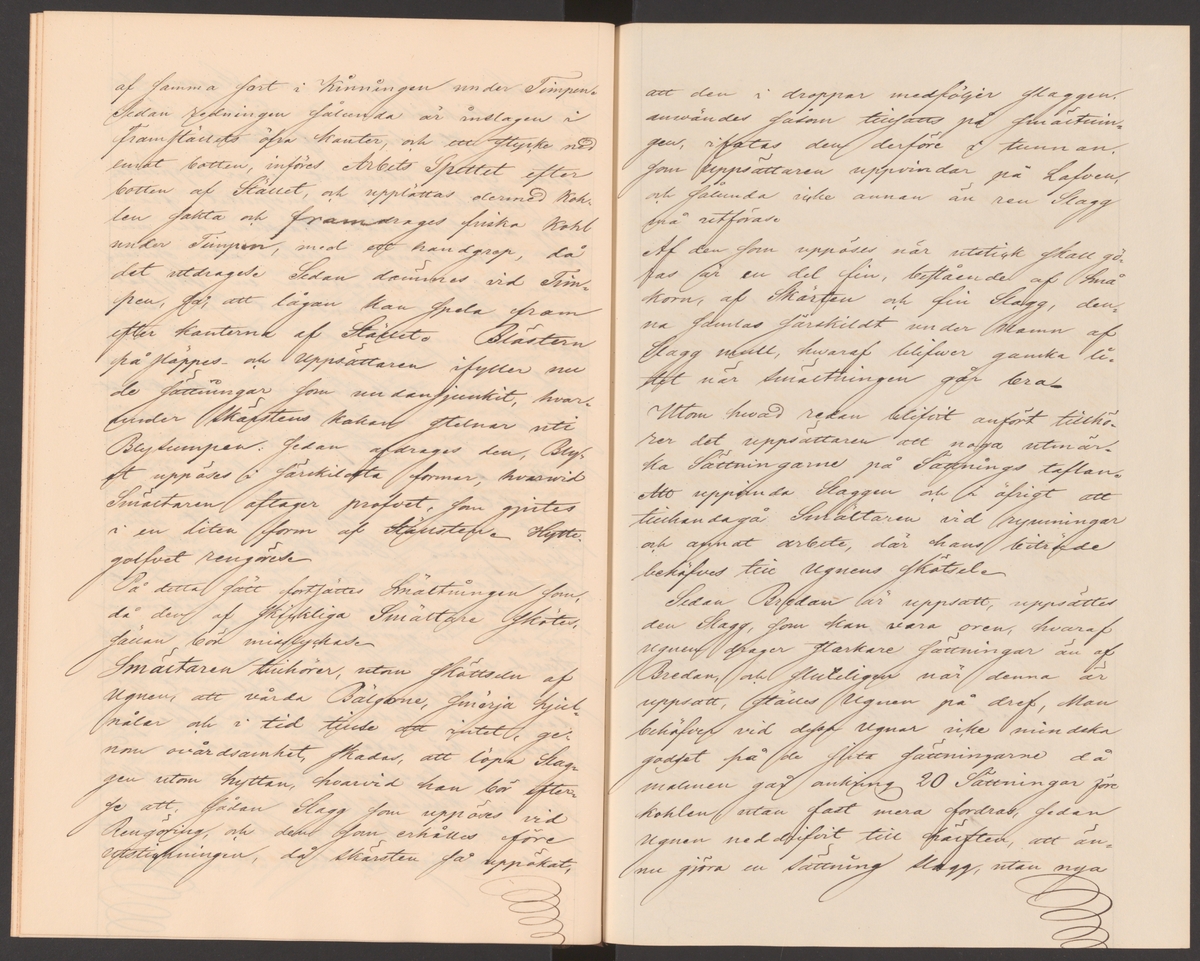 af samma sort i Rånningen under Timpen.
Sedan redningen sålunda är inslagen i
Framställets öfra kanter, och ett stycke ned
emot botten, införes Arbets Spettet efter
botten af Stället, och upplättas dermed Koh-
len sakta och framdrages friska Kohl
under Timpen, med ett handgrep, då
det utdrages. Sedan dämmes vid Tim-
pen, så, att lågan kan spela fram
efter kanterna af Stället. Blästern
på släppes och Uppsättaren ifyller nu
de sättningar som undansjunkit, hvar-
under Skärstens kakan stelnar uti
Blysumpen. Sedan afdrages den, Bly-
et uppöses i särskilda formar, hvarvid
Smältaren aftager profvet, som gjutes
i en liten form af Hytte-
golfvet rengöres.
På detta sätt fortsättes Smältningen som,
då den af skickliga Smältare skötes,
sällan bör misslyckas.
Smältaren tillhörer, utom skötseln af
Ugnen, att vårda Bälgarne, smörja hjul-
nålar och i tid tillse att intet, ge-
nom ovårdsamhet, skadas, att löpa Slag-
gen utom hyttan, hvarvid han bör efter-
se att, sådan Slagg som uppöses vid
Rengöring, och den som erhålles före
utstickningen, då skärsten så uppökat,
att den i droppar medföljer slaggen,
användes såsom tillsatts på smältnin-
gen, ifatas den derföre i tunnan,
som Uppsättaren uppvindar på Lafven,
och sålunda icke annan än ren Slagg
må utföras.
Af den som uppöses när utstick skall gö-
ras är en del fin, bestående af små
korn, af Skärsten och fin Slagg, den-
na samlas särskildt under Namn af
Slagg mull, hvaraf blifwer ganska li-
tet när smältningen går bra.
Utom hwad redan blifvit anfört tillhö-
rer det uppsättaren att noga utmär-
ka Sättningarne på Sättnings taflan,
Att uppvinda Slaggen och i öfrigt att
tillhandagå Smältaren vid rymningar
och annat arbete, där hans biträde
behöfves till Ugnens skötsel.
Sedan Bredan är uppsatt, uppsättes
den Slagg, som kan vara oren, hvaraf
Ugnen drager starkare sättningar än af
Bredan, och slutligen när denna är
uppsatt, ställes Ugnen på dref, Man
behöfver vid dessa Ugnar icke minska
godset på de sista sättningarne då
malmen går omkring 20 Sättningar före
kohlen, utan fast mera fordras, sedan
Ugnen neddrifvit till hälften, att än-
nu gjöra en Sättning slagg, utan nya